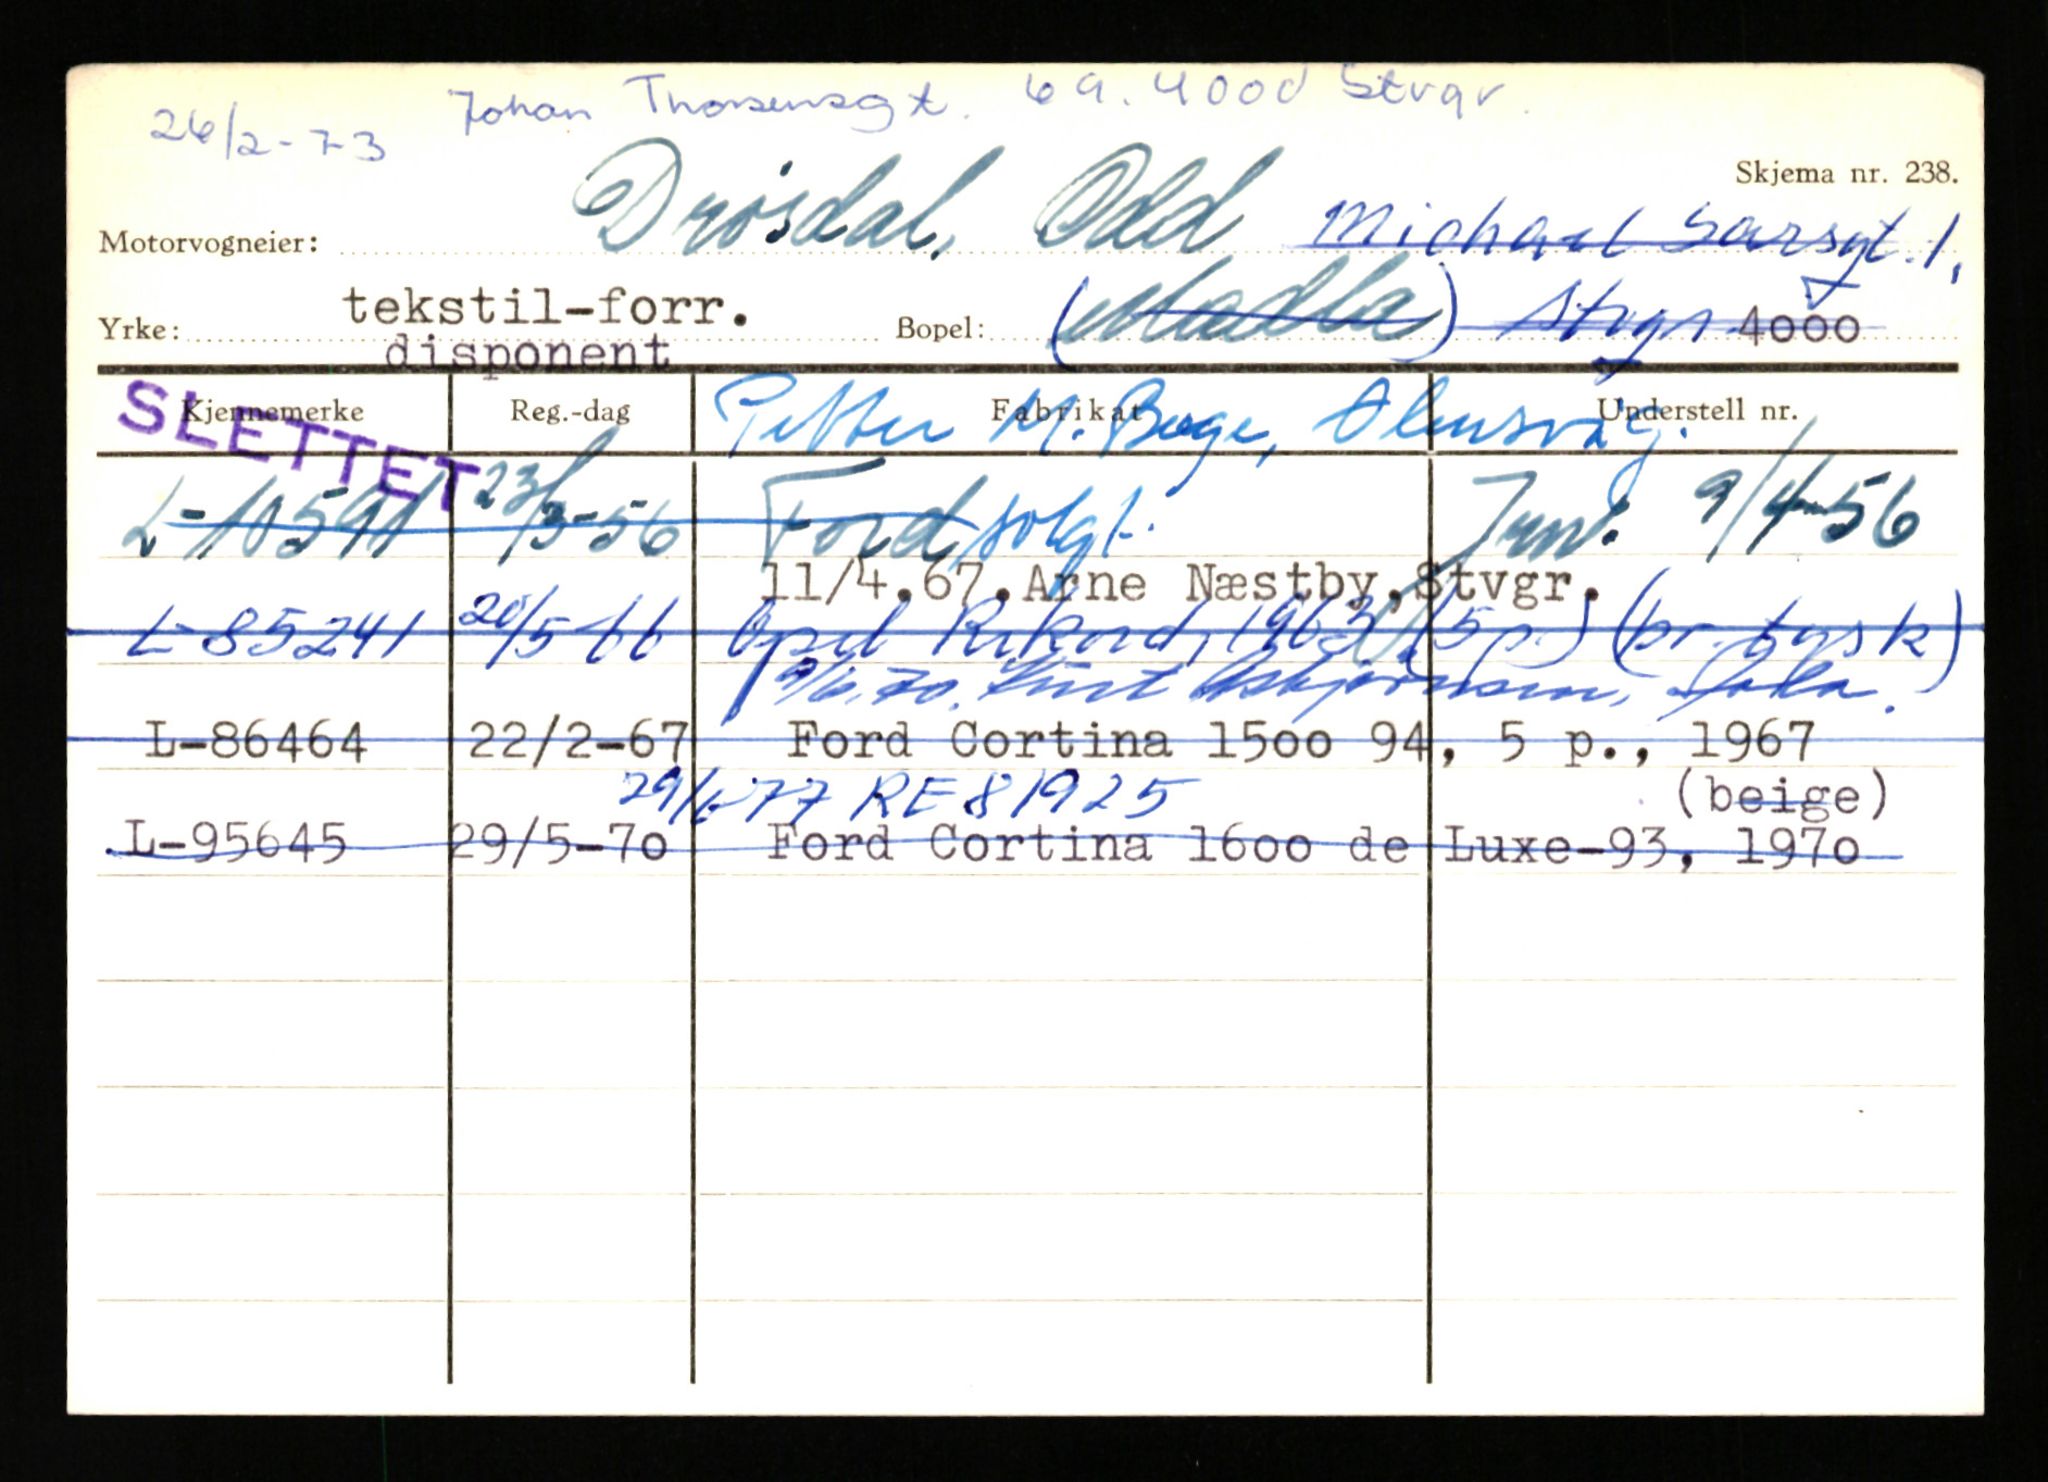 26/2-73 Johan Thorsensgt. 69. 4000 Stvgr.
Skjema nr. 238.
Motorvogneier: Drøsdal, Odd Michael Sarsgt. 1,
Yrke: tekstil-forr. Bopel: (Madla) Stvgr 4000
disponent
Kjennemerke Reg.-dag Fabrikat Understell nr.
SLETTET
Petter M. Bøge, Ølensvåg.
L-10591 23/3-56 Ford solgt. 9/4-56
11/4.67.Arne Næstby,Stvgr.
L-85241 20/5-66 Opel Rekord, 1963 (5 p.) (br. tysk)
9/6.70.
L-86464 22/2-67 Ford Cortina 1500 94, 5 p., 1967
(beige)
29/6-77 RE 81925
L-95645 29/5-70 Ford Cortina 1600 de Luxe-93, 1970